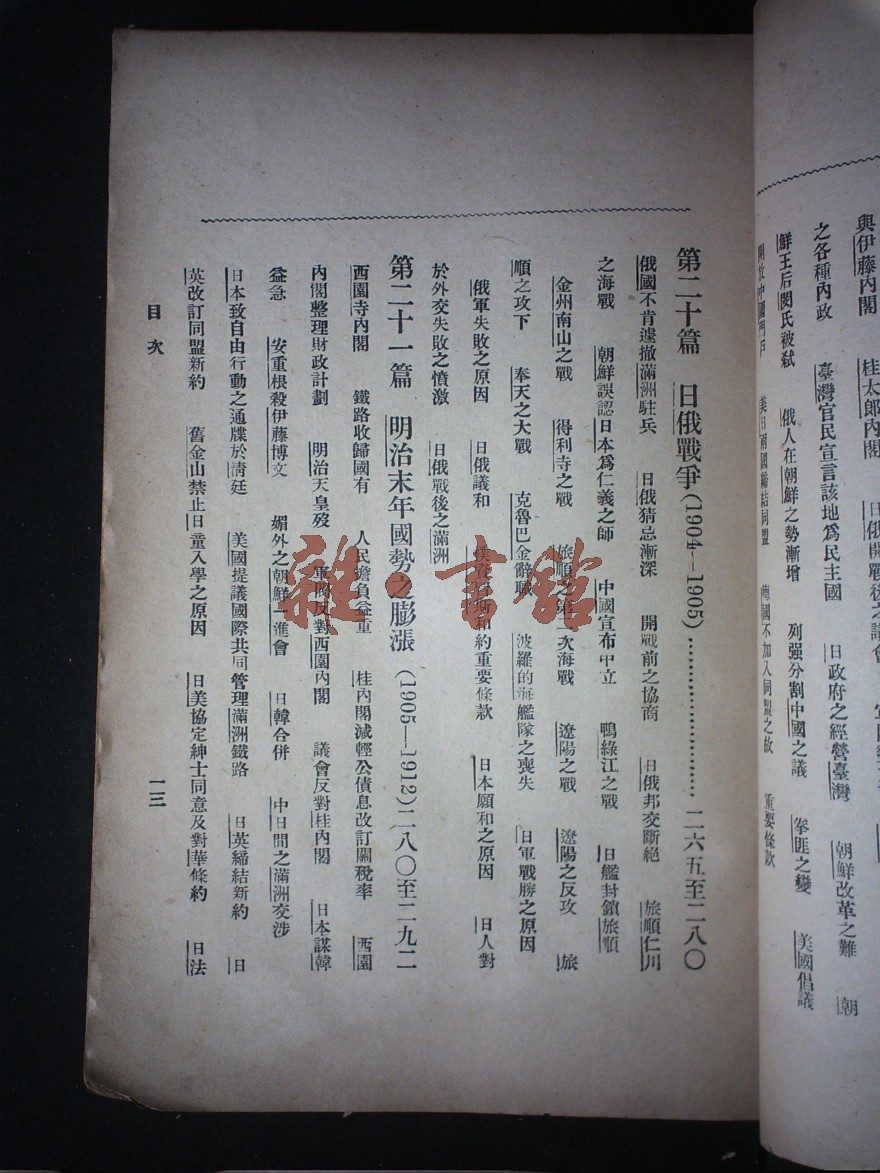 與伊藤內閣 桂太郎內閣 日俄開戰後之議會
之各種內政 臺灣官民宣言該地爲民主國 日政府之經營臺灣 朝鮮改革之難 朝
鮮王后閔氏被弒 俄人在朝鮮之勢漸增 列强分割中國之議 拳匪之變 美國倡議
開放中國門戶 英日兩國締結同盟 國不加入同盟之故 重要條款
第二十篇 日俄戰爭(1904—1905)…………………… 二六五至二八〇
俄國不肯遽撤滿洲駐兵 日俄猜忌漸深 開戰前之協商 日俄邦交斷絕 旅順仁川
之海戰 朝鮮誤認日本爲仁義之師 中國宣布中立 鴨綠江之戰 日艦封鎖旅順
金州南山之戰 得利寺之戰 旅順之第一次海戰 遼陽之戰 遼陽之反攻 旅
順之攻下 奉天之大戰 克魯巴金辭職 波羅的海艦隊之喪失 日軍戰勝之原因
俄軍失敗之原因 日俄議和 和約重要條款 日本願和之原因 日人對
於外交失敗之憤激 日俄戰後之滿洲
第二十一篇 明治末年國勢之膨漲 (1905—1912)二八〇至二九二
西園寺內閣 鐵路收歸國有 人民擔負益重 桂內閣減輕公債息改訂關稅率 西園
內閣整理財政計劃 明治天皇歿 軍閥反對西園內閣 議會反對桂內閣 日本謀韓
益急 安重根殺伊藤博文 媚外之朝鮮一進會 日韓合併 中日間之滿洲交涉
日本致自由行動之通牒於淸廷 美國提議國際共同管理滿洲鐵路 日英締結新約 日
英改訂同盟新約 舊金山禁止日童入學之原因 日美協定紳士同意及對華條約 日法
目次
一三
雜·書館